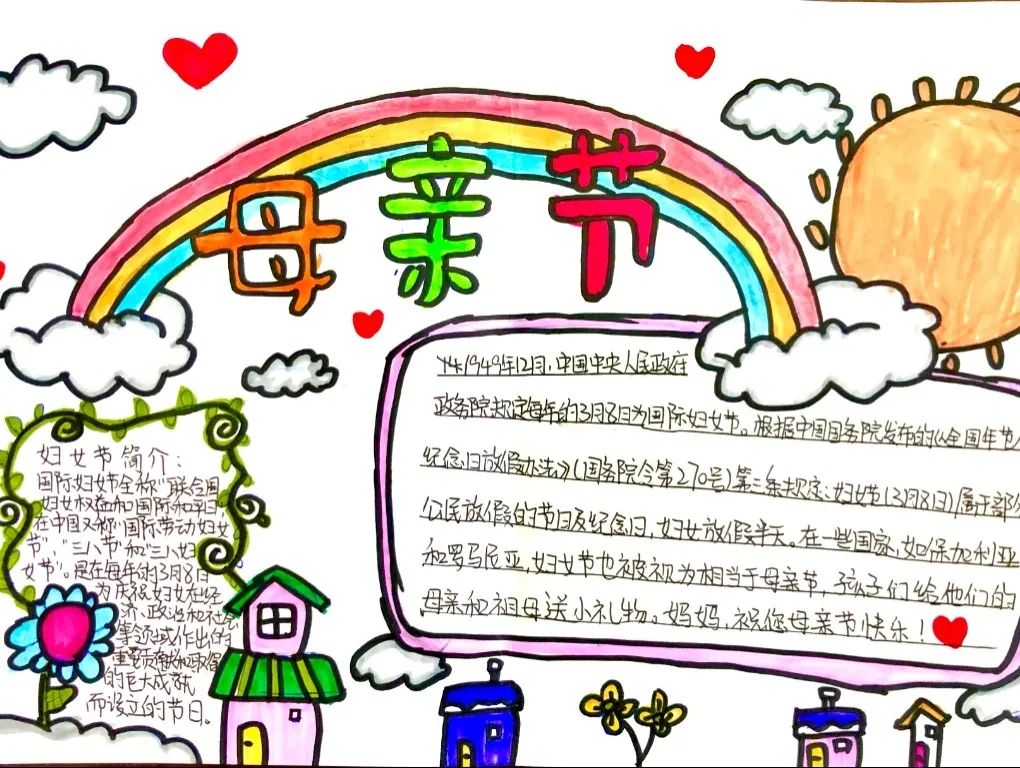 母亲节
1949年12月,中国中央人民政府
政务院规定每年的3月8日为国际妇女节。根据中国国务院发布的《全国年节
纪念日放假办法》(国务院令第270号)第三条规定:妇女节(3月8日)属于部分
公民放假的节日及纪念日,妇女放假半天。在一些国家,如保加利亚
和罗马尼亚,妇女节也被视为相当于母亲节,孩子们给他们的
母亲和祖母送小礼物。妈妈,祝您母亲节快乐!
妇女节简介:
国际妇女节全称"联合国
妇女权益和国际和平日
在中国又称"国际劳动妇女
节","三八节"和"三八妇
女节"。是在每年的3月8日
为庆祝妇女在经
济、政治和社
等领域作出的
重要贡献和取得
的巨大成就
而设立的节日。